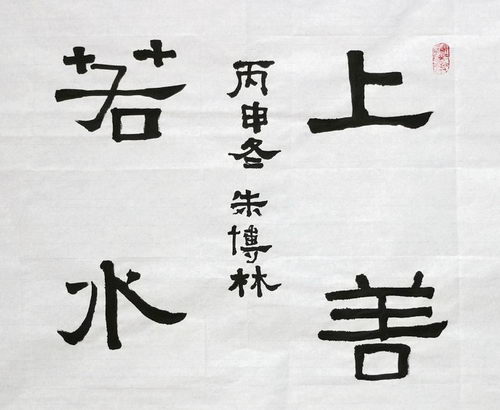 上善
丙申冬 朱博林
若水